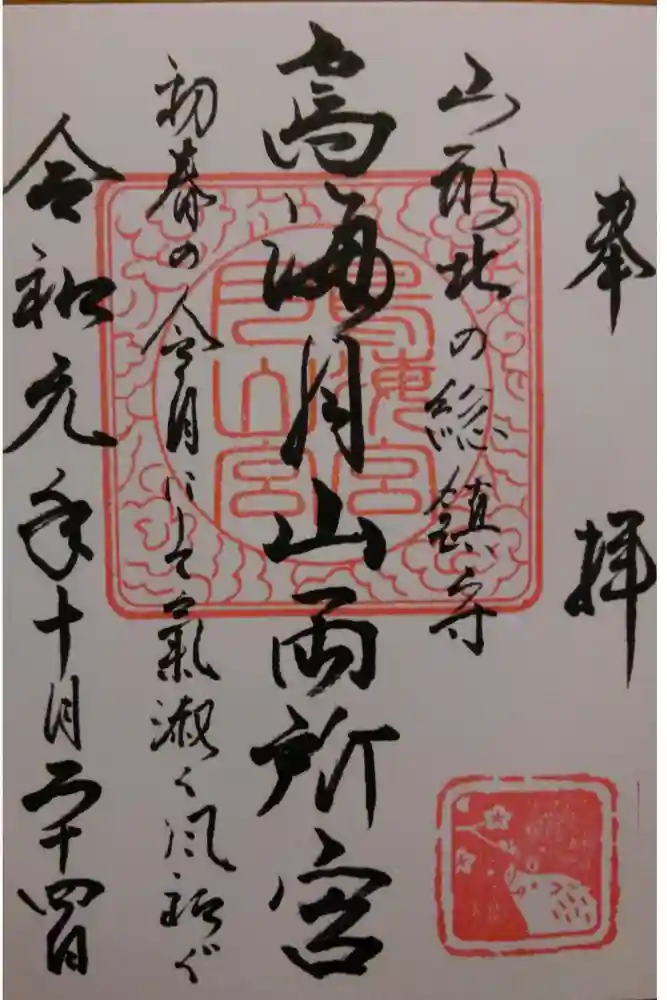 奉拝
山形北の総鎮守
鳥海月山両所宮
初春の令月にして氣淑く風和ぐ
令和元年十月二十四日
鳥海宮
月山宮